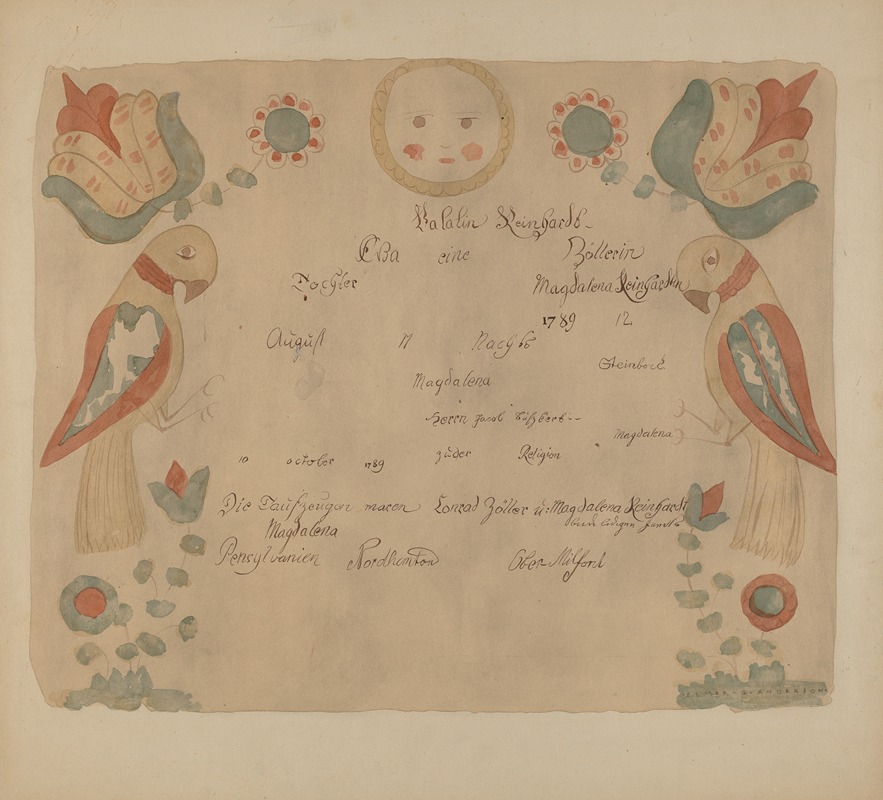 Valatin Reinhards
Eva eine Zöllerin
Tochter Magdalena Reinhardtin
1789 12
August 17 Nachts
Steinbock
Magdalena
Herrn Jacob
Magdalena
10 october 1789 zuder Religion
Die Taufzeugen waren Conrad Zöller u: Magdalena Reinhardt
beide ledigen
Magdalena
Pensylvanien Nordhemton Ober Milford
ELMER G. ANDERSON